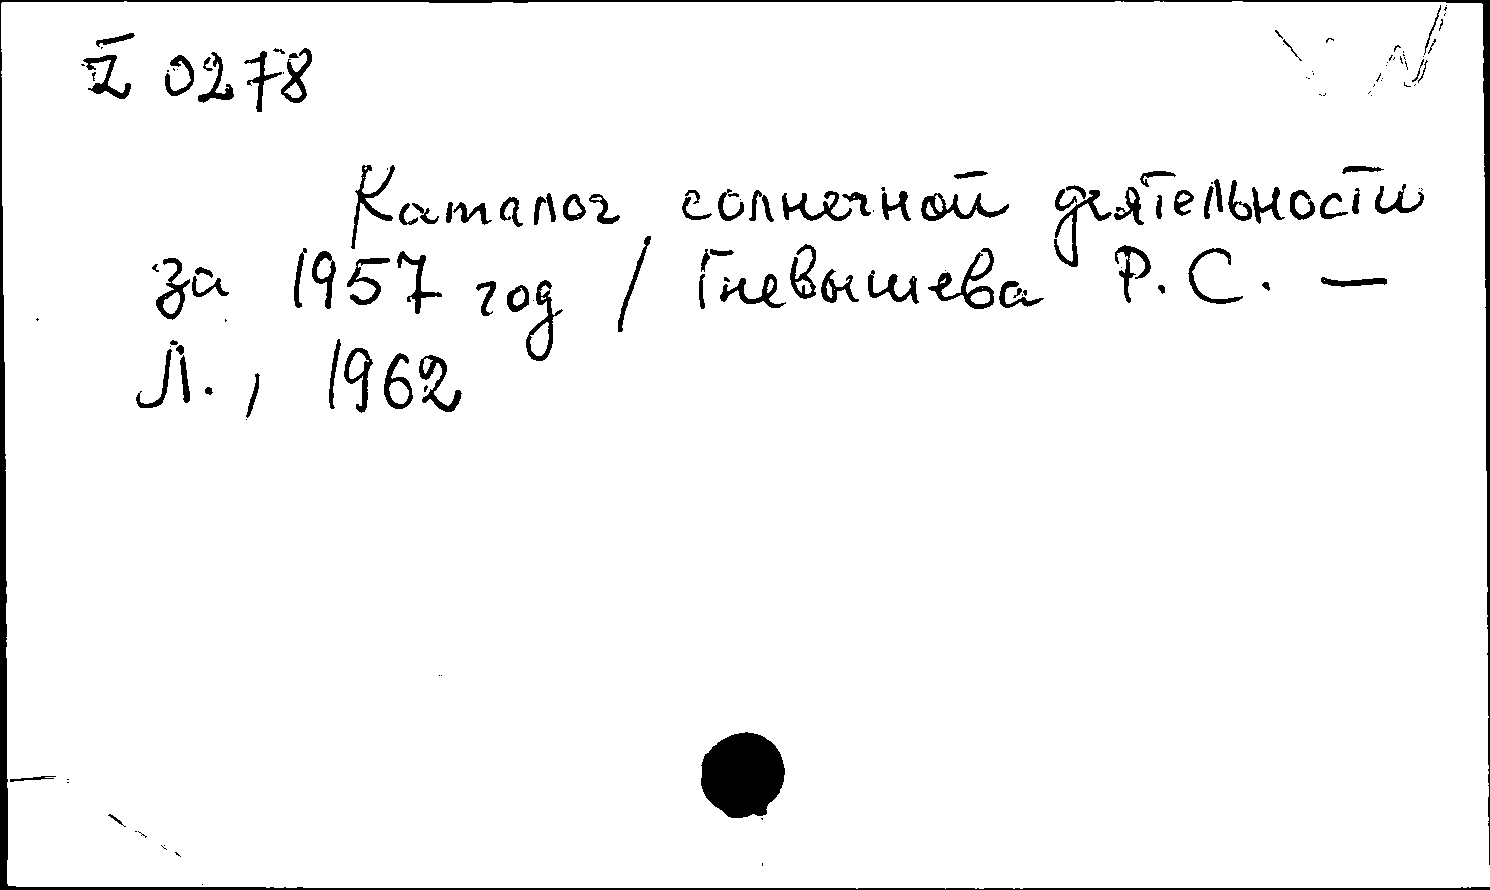 Z 0278
Каталог солнечной деятельности
за 1957 год / Гневышева Р. С. —
Л., 1962